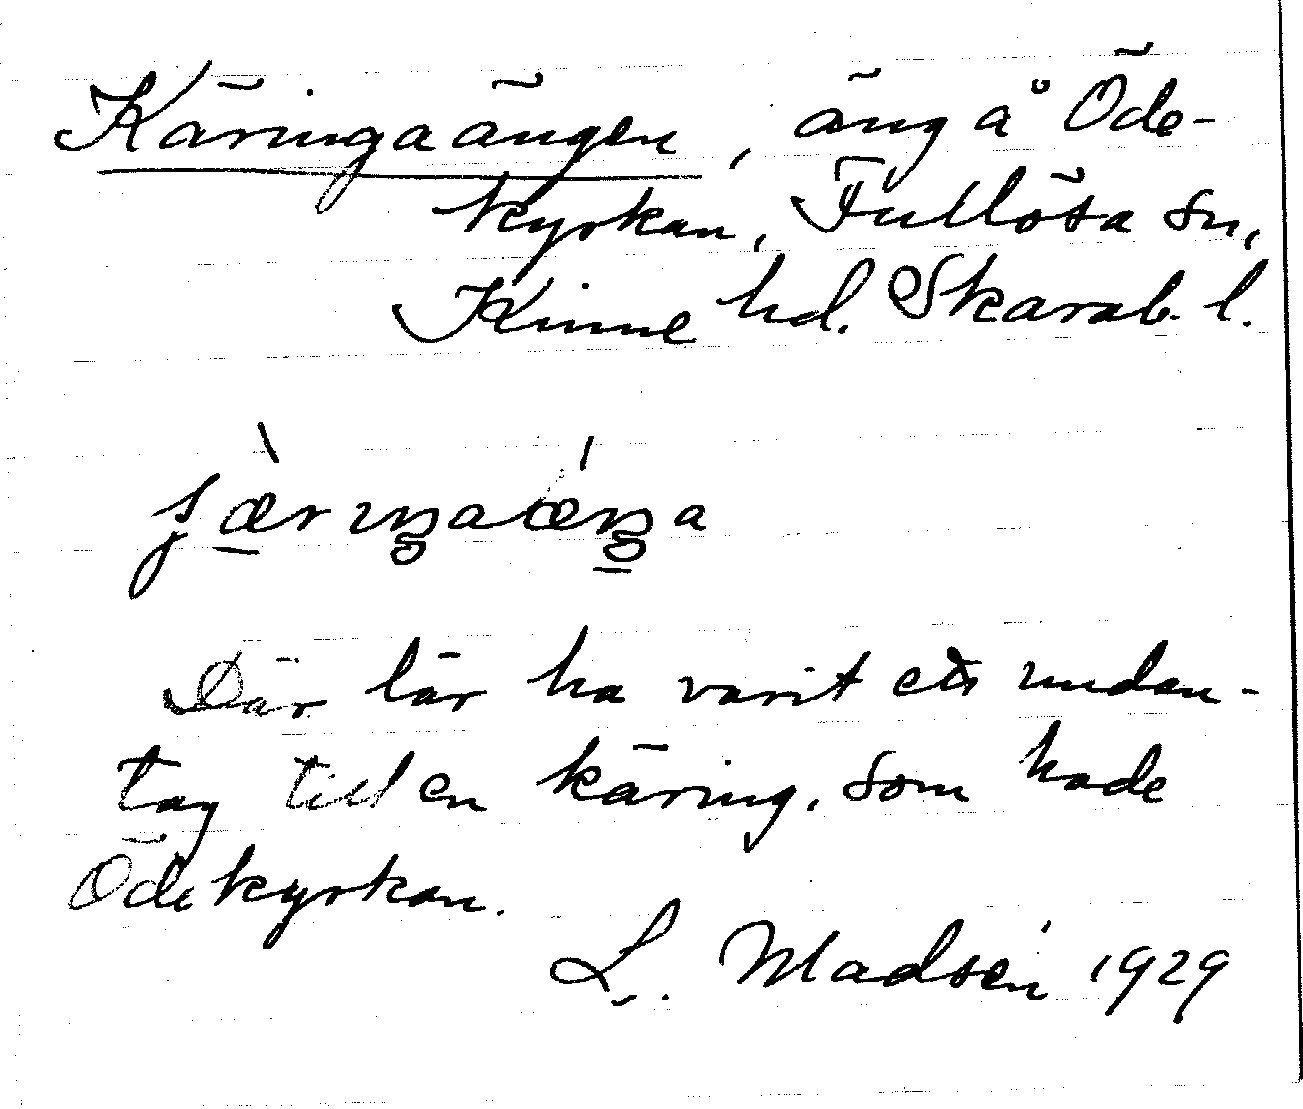 Käringaängen, äng å Öde-
kyrkan, Fullösa sn,
Kinne hd. Skarab. l.
Där lär ha varit ett undan-
tag till en käring, som hade
Ödekyrkan.
L. Madsén 1929